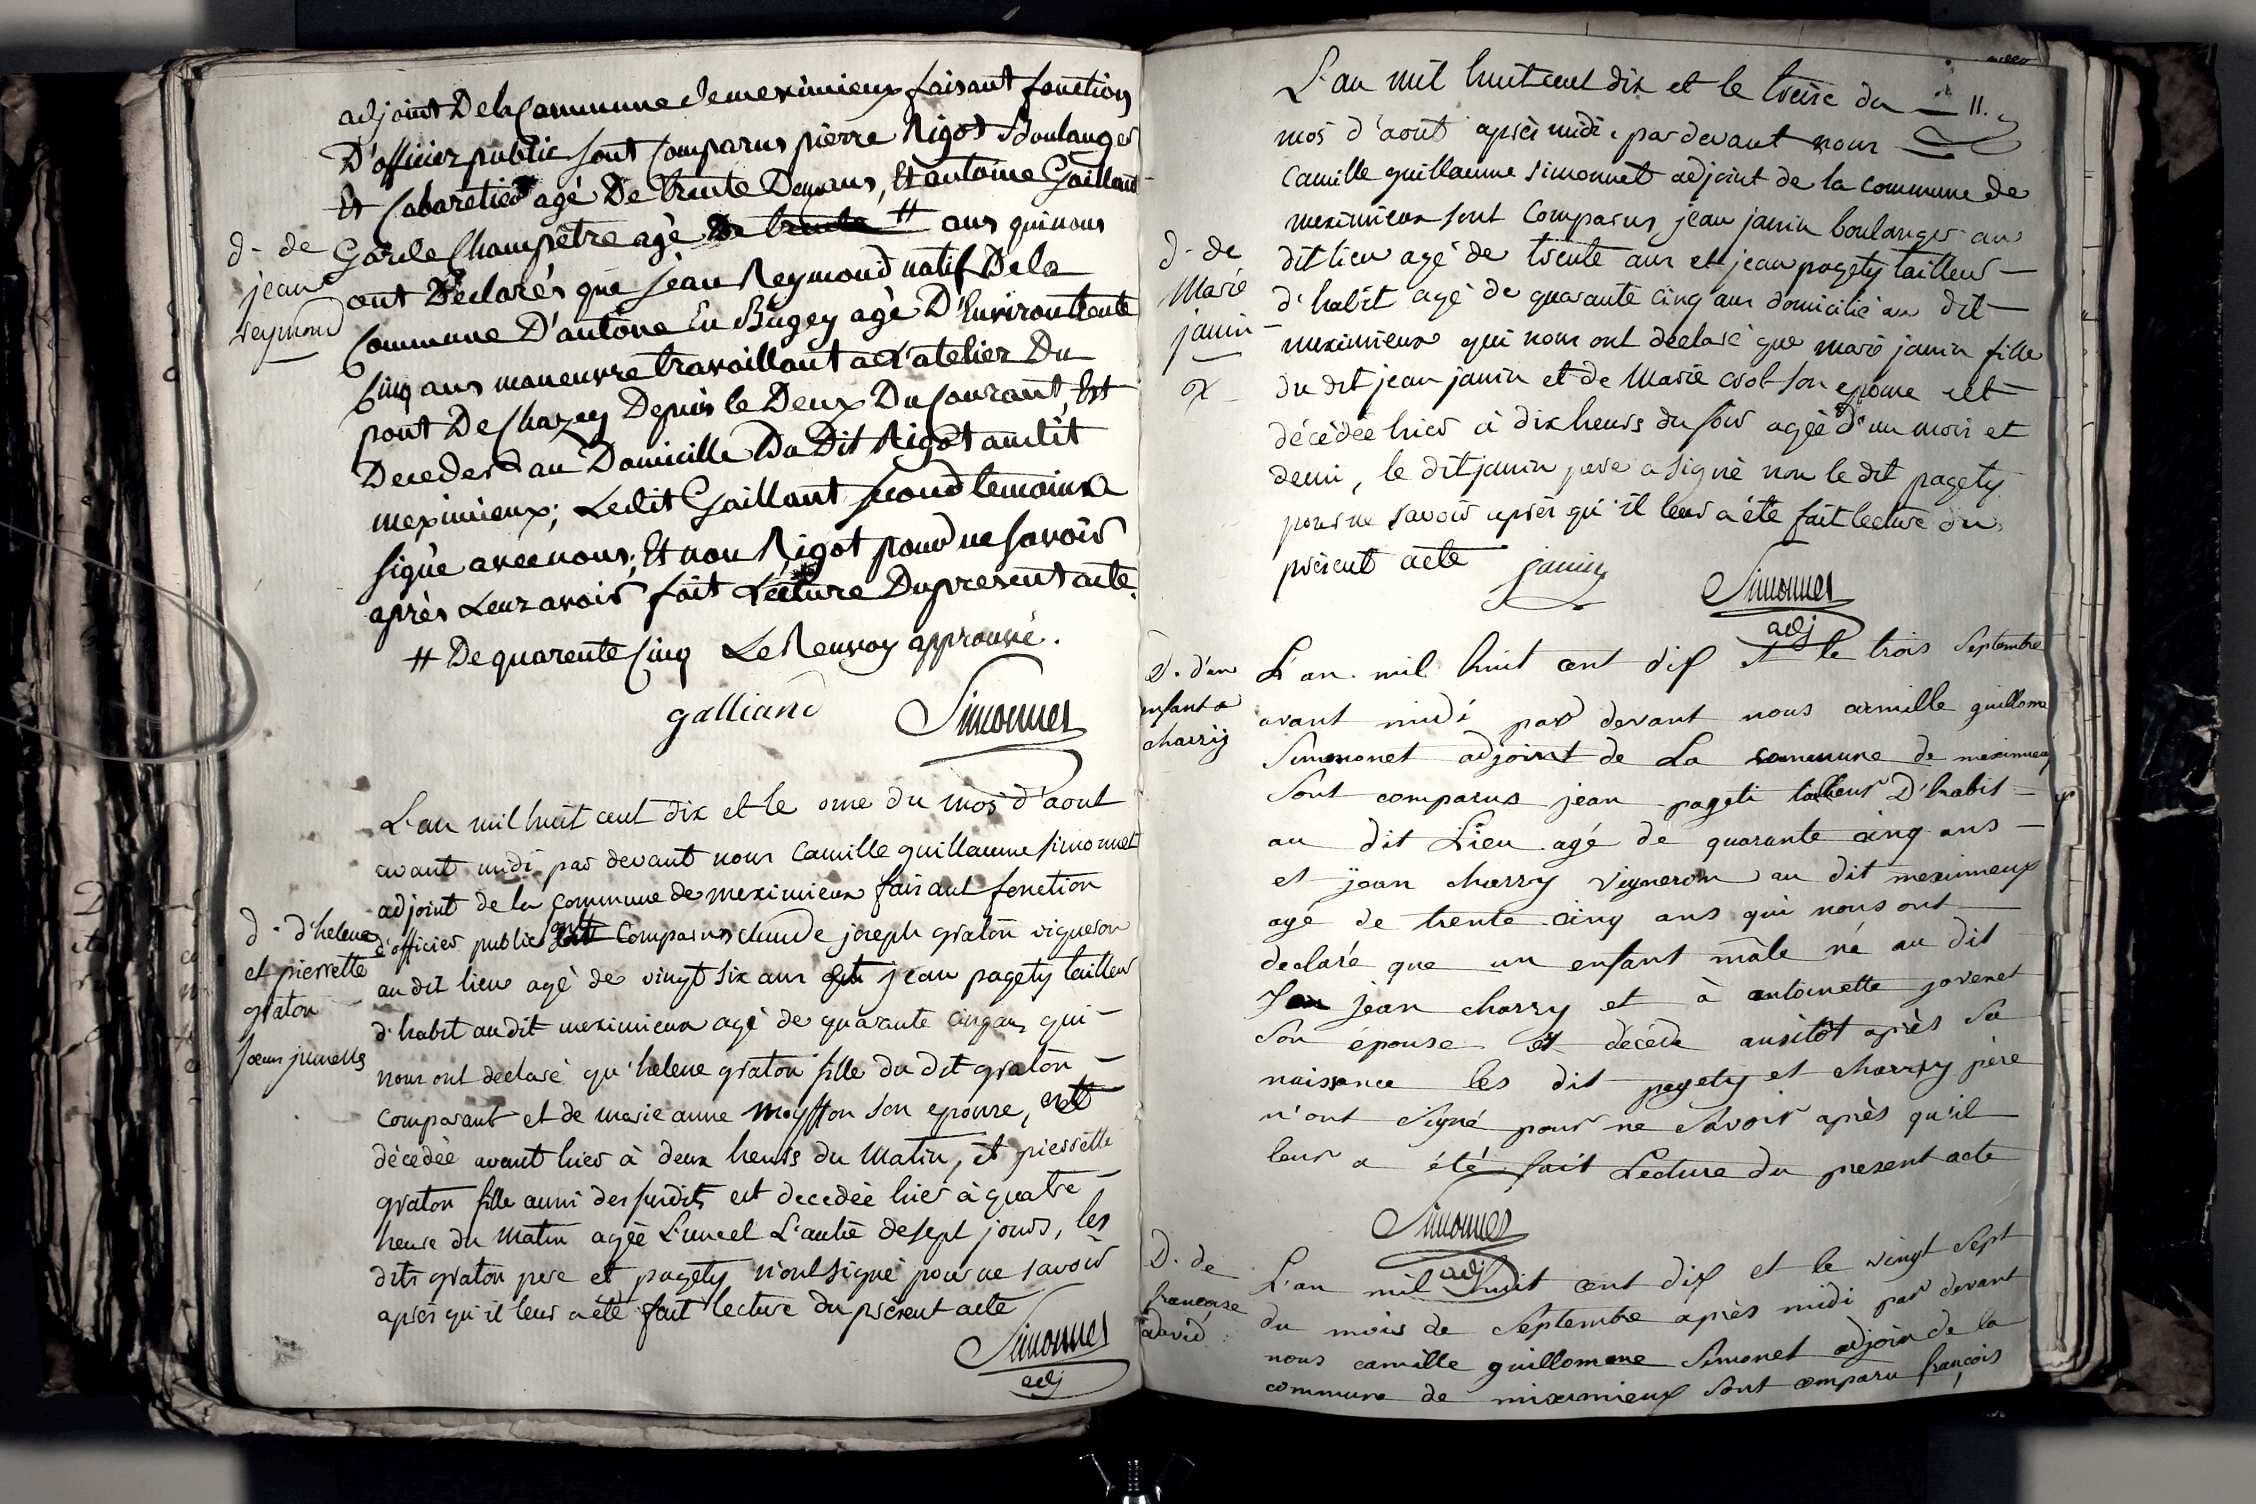 adjoint De la Commune de meximieux faisant fonction
D'officier public sont Comparus pierre Rigot Boulanger
Et Cabaretier agé De trente Deux ans, Et antoine Gaillant
d. de
jean
reymond
Garde Champêtre agé De trente # ans qui nous
ont Déclarés que jean Reymond natif De la
Commune D'antone En Bugey agé D'Environ trente
Cinq ans maneuvre travaillant a L'atelier Du
pont De Chazey Depuis le Deux Du Courant, Est
Deceder au Domicille Du Dit Rigot audit
meximieux; Ledit Gaillant second temoin a
signé avec nous, Et non Rigot pour ne savoir
après Leur avoir fait Lecture Du present acte.
# De quarente Cinq Le Renvoy approuvé.
galliand Simonnet
L'an mil huit cent dix et le onse du mos d'aout
avant midi par devant nous Camille guillaume simonnet
adjoint de la commune de meximieux faisant fonction
d. d'helene
et pierrette
graton
soeurs jumelles
d'officier public sont Comparus claude joseph graton vigneron
au dit lieu agé de vingt six ans et jean pagety tailleur
d'habit au dit meximieux agé de quarante cinq ans qui
nous ont declaré qu'helene graton fille du dit graton
comparant et de marie anne moyffon son epouse, est
décédée avant hier à deux heures du matin, et pierrette
graton fille aussi des susdits est decedée hier à quatre
heure du matin agée L'une et L'autre de sept jours, les
dits graton pere et pagety n'ont signé pour ne savoir
après qu'il leur a été fait lecture du présent acte
Simonnet
adj
L'an mil huit cent dix et le treise du 11.
mos d'aout après midi par devant nous
Camille guillaume simonnet adjoint de la commune de
meximieux sont Comparus jean janin boulanger au
d. de
Marie
janin
dit lieu agé de trente ans et jean pagety tailleur
d'habit agé de quarante cinq ans domicilié au dit
meximieux qui nous ont declaré que marie janin fille
du dit jean janin et de Marie crot son epouse est
décédée hier à dix heures du soir agée d'un mois et
demi, le dit janin pere a signé non le dit pagety
pour ne savoir après qu'il leur a été fait lecture du
présent acte janin Simonnet
adj
D. d'un
enfant a
charriy
L'an mil huit cent dix et le trois Septembre
avant midi par devant nous camille guillome
Simmonet adjoint de La commune de meximieux
Sont comparus jean pageti tailleur D'habit
au dit Lieu agé de quarante cinq ans
et jean charry vigneron au dit meximieux
agé de trente cinq ans qui nous ont
declaré que un enfant mâle né au dit
jean charry et à antoinette jovenet
Son épouse est décédé ausitôt après Sa
naissance les dit pagety et charry père
n'ont signé pour ne Savoir après qu'il
leur a été fait Lecture du present acte
Simonnet
adj
D. de
francoise
david
L'an mil huit cent dix et le vingt Sept
du mois de Septembre après midi par devant
nous camille guillomme Simonet adjoin de la
commune de miximieux Sont comparu françois